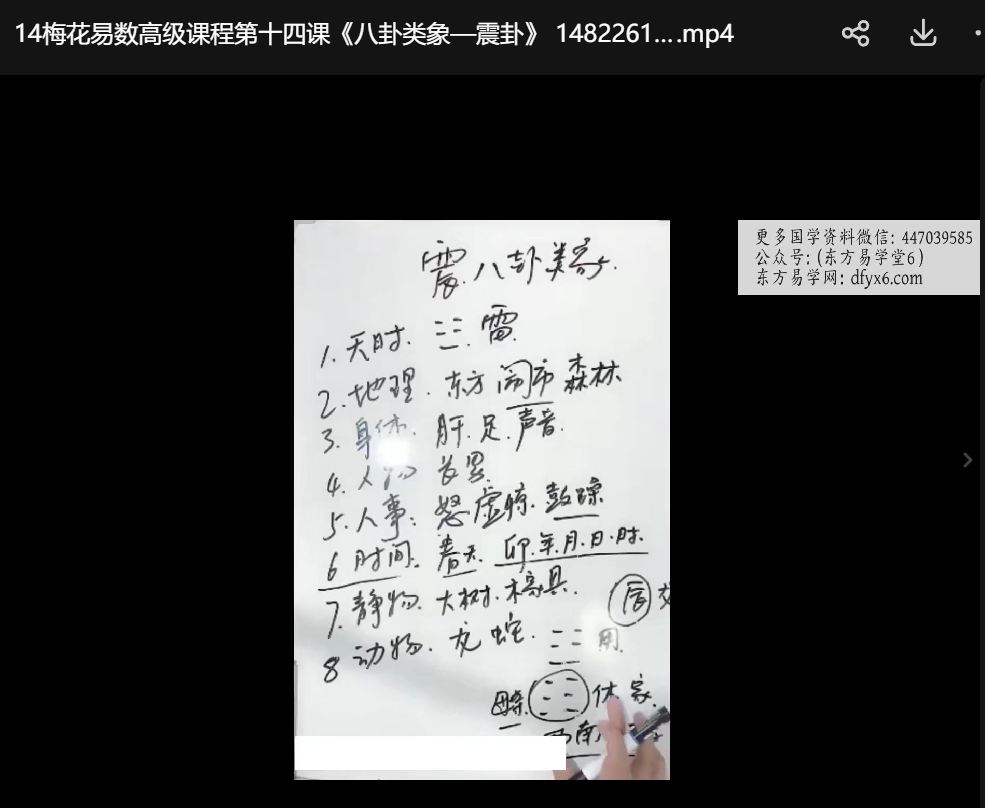 14梅花易数高级课程第十四课《八卦类象—震卦》 1482261... .mp4
更多国学资料微信: 447039585
公众号: (东方易学堂6)
东方易学网: dfyx6.com
震八卦类象.
1. 天时. ☳. 雷.
2. 地理. 东方 闹市 森林
3. 身体. 肝. 足. 声音.
4. 人物 长男.
5. 人事: 怒 虚惊. 鼓躁
6 时间. 春天. 卯. 年. 月. 日. 时.
7. 静物. 大树. 木家具.
8 动物. 龙 蛇.
用.
母亲. ☷ 体 家.
西南